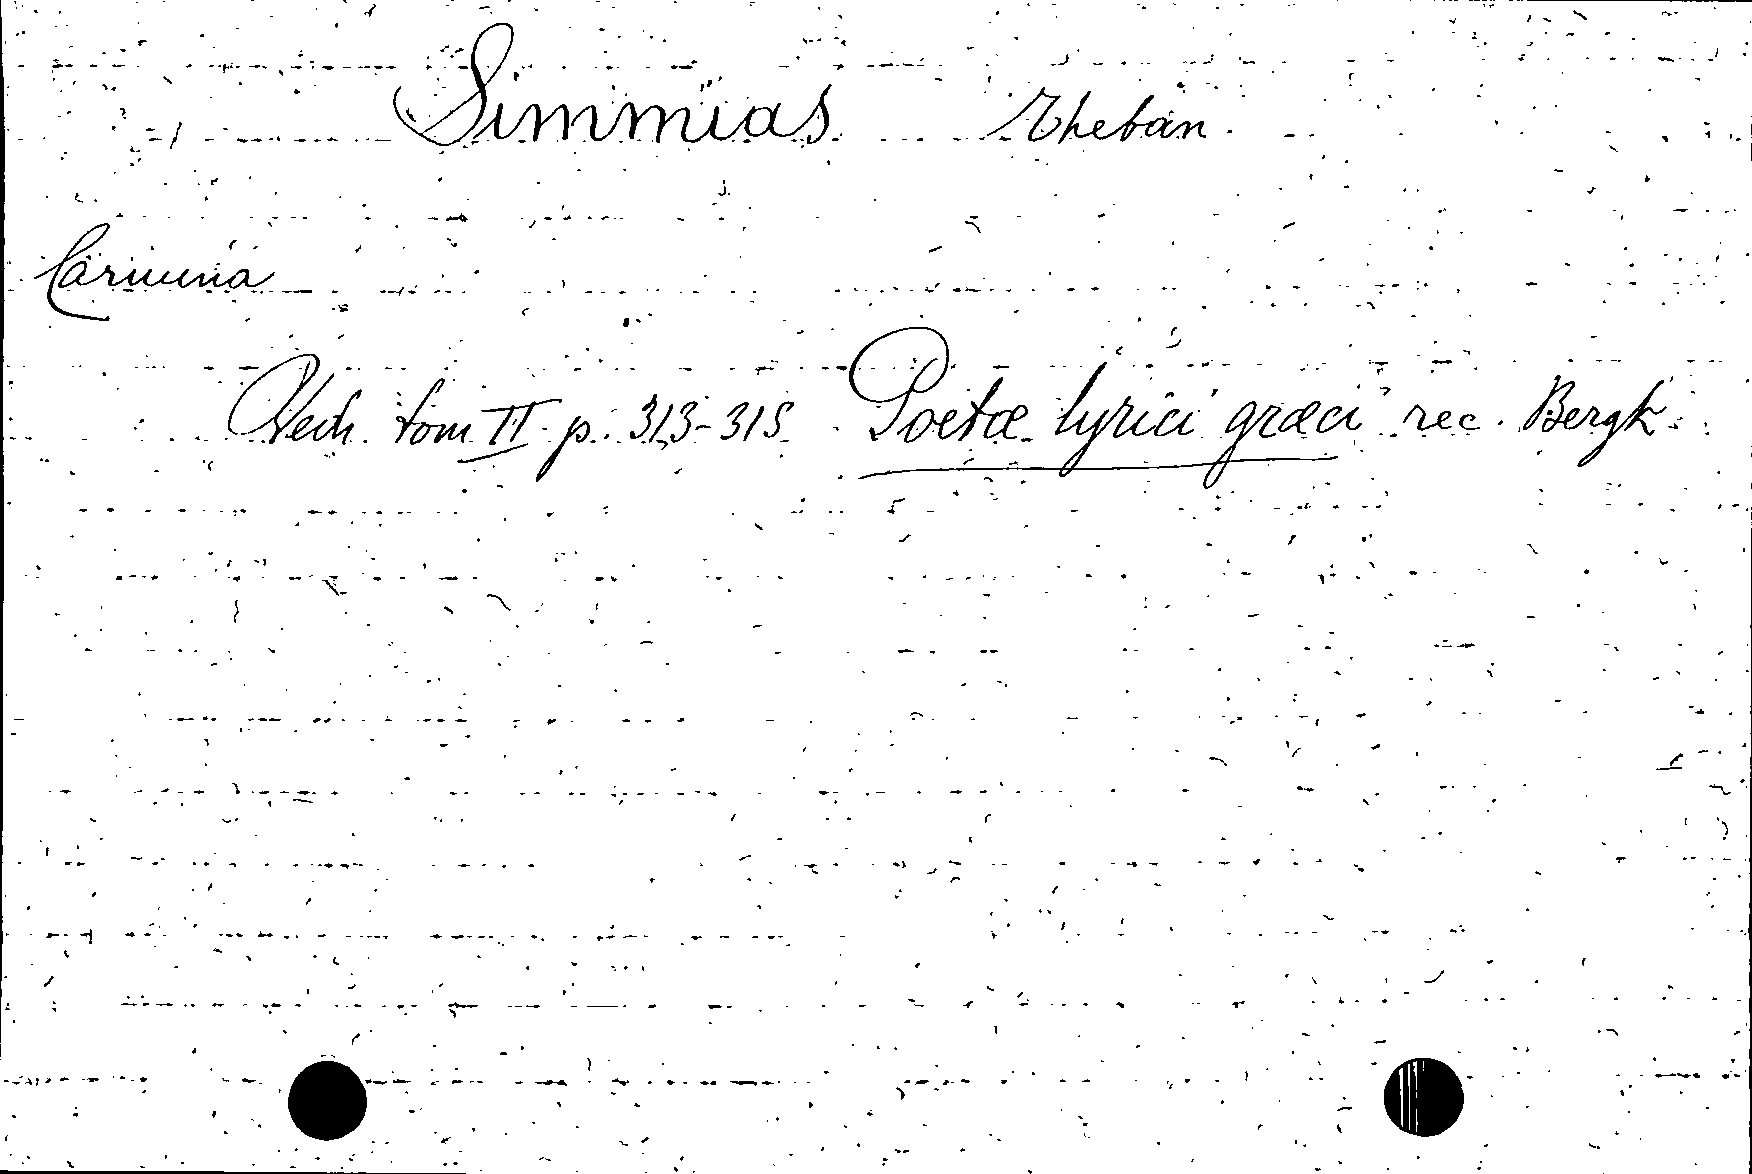 Simmias Theban.
Carmina
Vech tom II p. 313-315 Poetæ lyrici græci rec. Bergk.